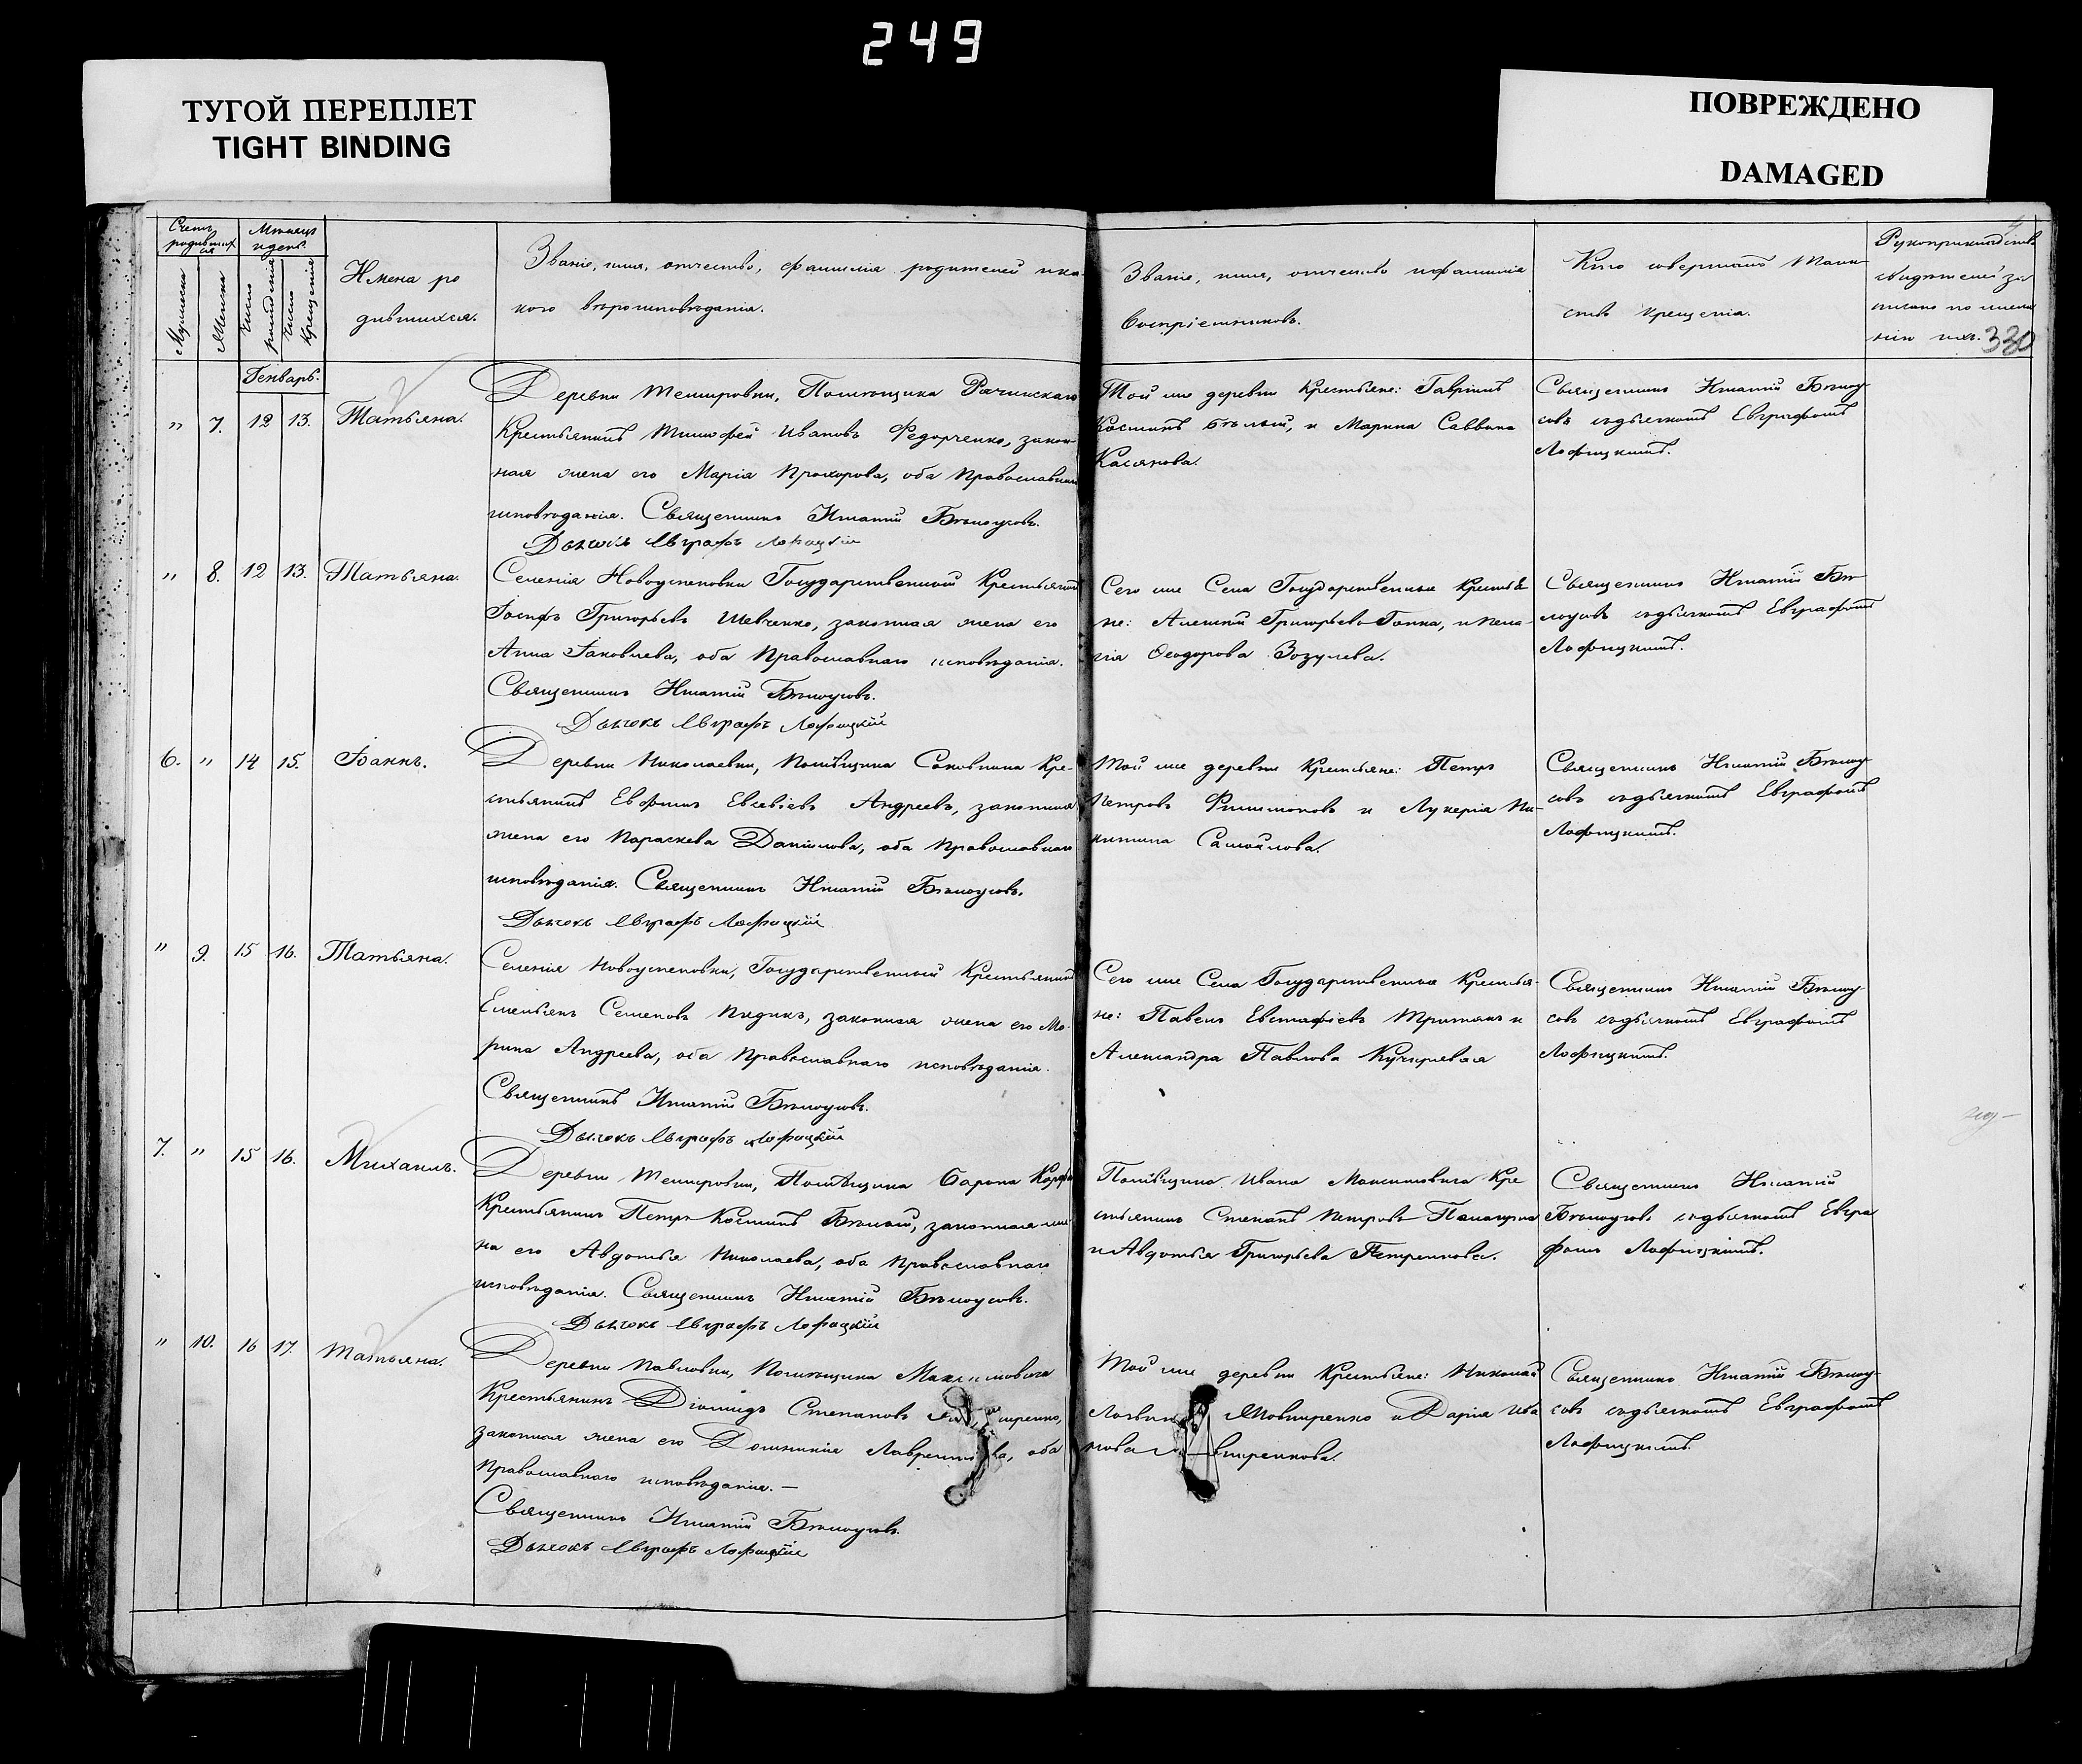 249
ТУГОЙ ПЕРЕПЛЕТ
TIGHT BINDING
ПОВРЕЖДЕНО
DAMAGED
Счетъ родившихся
Мужеска
Женска
Мѣсяцъ и день.
Число рожденія
Число Крещенія
Имена ро
дившихся.
Званіе, имя, отчество, фамилія родителей и ка-
кого вѣроисповѣданія.
Званіе, имя, отчество и фамилія
Воспріемниковъ.
Кто совершалъ Таин
ство крещенія.
Рукоприкладство
свидѣтелей за
писано по жела
нію ихъ.
330
Генварь.
" 7. 12 13. Татьяна.
Деревни Темировки, Помѣщика Рачинскаго
Крестьянинъ Тимофей Ивановъ Федорченко, закон-
ная жена его Марія Прохорова, оба Православнаго
исповѣданія. Священникъ Игнатій Бѣлоусовъ.
Дьячокъ Евграфъ Лофицкій
Той же деревни Крестьяне: Гавріилъ
Косминъ Бѣлый, и Марина Саввина
Касянова.
Священникъ Игнатій Бѣлоу-
совъ съ дьячкомъ Евграфомъ
Лофицкимъ.
" 8. 12 13. Татьяна.
Селенія Новоуспеновки Государственный Крестьянинъ
Іосифъ Григорьевъ Шевченко, законная жена его
Анна Яковлева, оба Православнаго исповѣданія.
Священникъ Игнатій Бѣлоусовъ.
Дьячокъ Евграфъ Лофицкій
Сего же Села Государственные Крестья
не: Алексѣй Григорьевъ Гопка, и Пела-
гія Ѳеодорова Зозулева.
Священникъ Игнатій Бѣ
лоусовъ съ дьячкомъ Евграфомъ
Лофицкимъ.
6. " 14 15. Іоаннъ.
Деревни Николаевки, Помѣщика Соковнина Кре-
стьянинъ Евфимъ Евсевіевъ Андреевъ, законная
жена его Параскева Даніилова, оба Православнаго
исповѣданія. Священникъ Игнатій Бѣлоусовъ.
Дьячокъ Евграфъ Лофицкій
Той же деревни Крестьяне: Петръ
Петровъ Филимоновъ и Лукерія Ни-
китина Самойлова.
Священникъ Игнатій Бѣлоу-
совъ съ дьячкомъ Евграфомъ
Лофицкимъ.
" 9. 15 16. Татьяна.
Селенія Новоуспеновки, Государственный Крестьянинъ
Емельянъ Семеновъ Индикъ, законная жена его Ма-
рина Андреева, оба Православнаго исповѣданія.
Священникъ Игнатій Бѣлоусовъ.
Дьячокъ Евграфъ Лофицкій
Сего же Села Государственные Крестья-
не: Павелъ Евстафіевъ Тритякъ и
Александра Павлова Кучерева
Священникъ Игнатій Бѣлоу-
совъ съ дьячкомъ Евграфомъ
Лофицкимъ.
7. " 15 16. Михаилъ.
Деревни Темировки, Помѣщика Барона Корфа
Крестьянинъ Петръ Косминъ Бѣлый, законная же-
на его Авдотья Николаева, оба Православнаго
исповѣданія. Священникъ Игнатій Бѣлоусовъ.
Дьячокъ Евграфъ Лофицкій
Помѣщика Ивана Максимовича Кре
стьянинъ Степанъ Петровъ
и Авдотья Григорьева Петренкова.
Священникъ Игнатій
Бѣлоусовъ съ дьячкомъ Евгра
фомъ Лофицкимъ.
" 10. 16 17. Татьяна.
Деревни Павловки, Помѣщика Максимовича
Крестьянинъ Діомидъ Степановъ
законная жена его Домникія Лаврентіева, оба
Православнаго исповѣданія. —
Священникъ Игнатій Бѣлоусовъ.
Дьячокъ Евграфъ Лофицкій
Той же деревни Крестьяне: Николай
Яковиренко и Дарія Ива
нова
Священникъ Игнатій Бѣлоу-
совъ съ дьячкомъ Евграфомъ
Лофицкимъ.